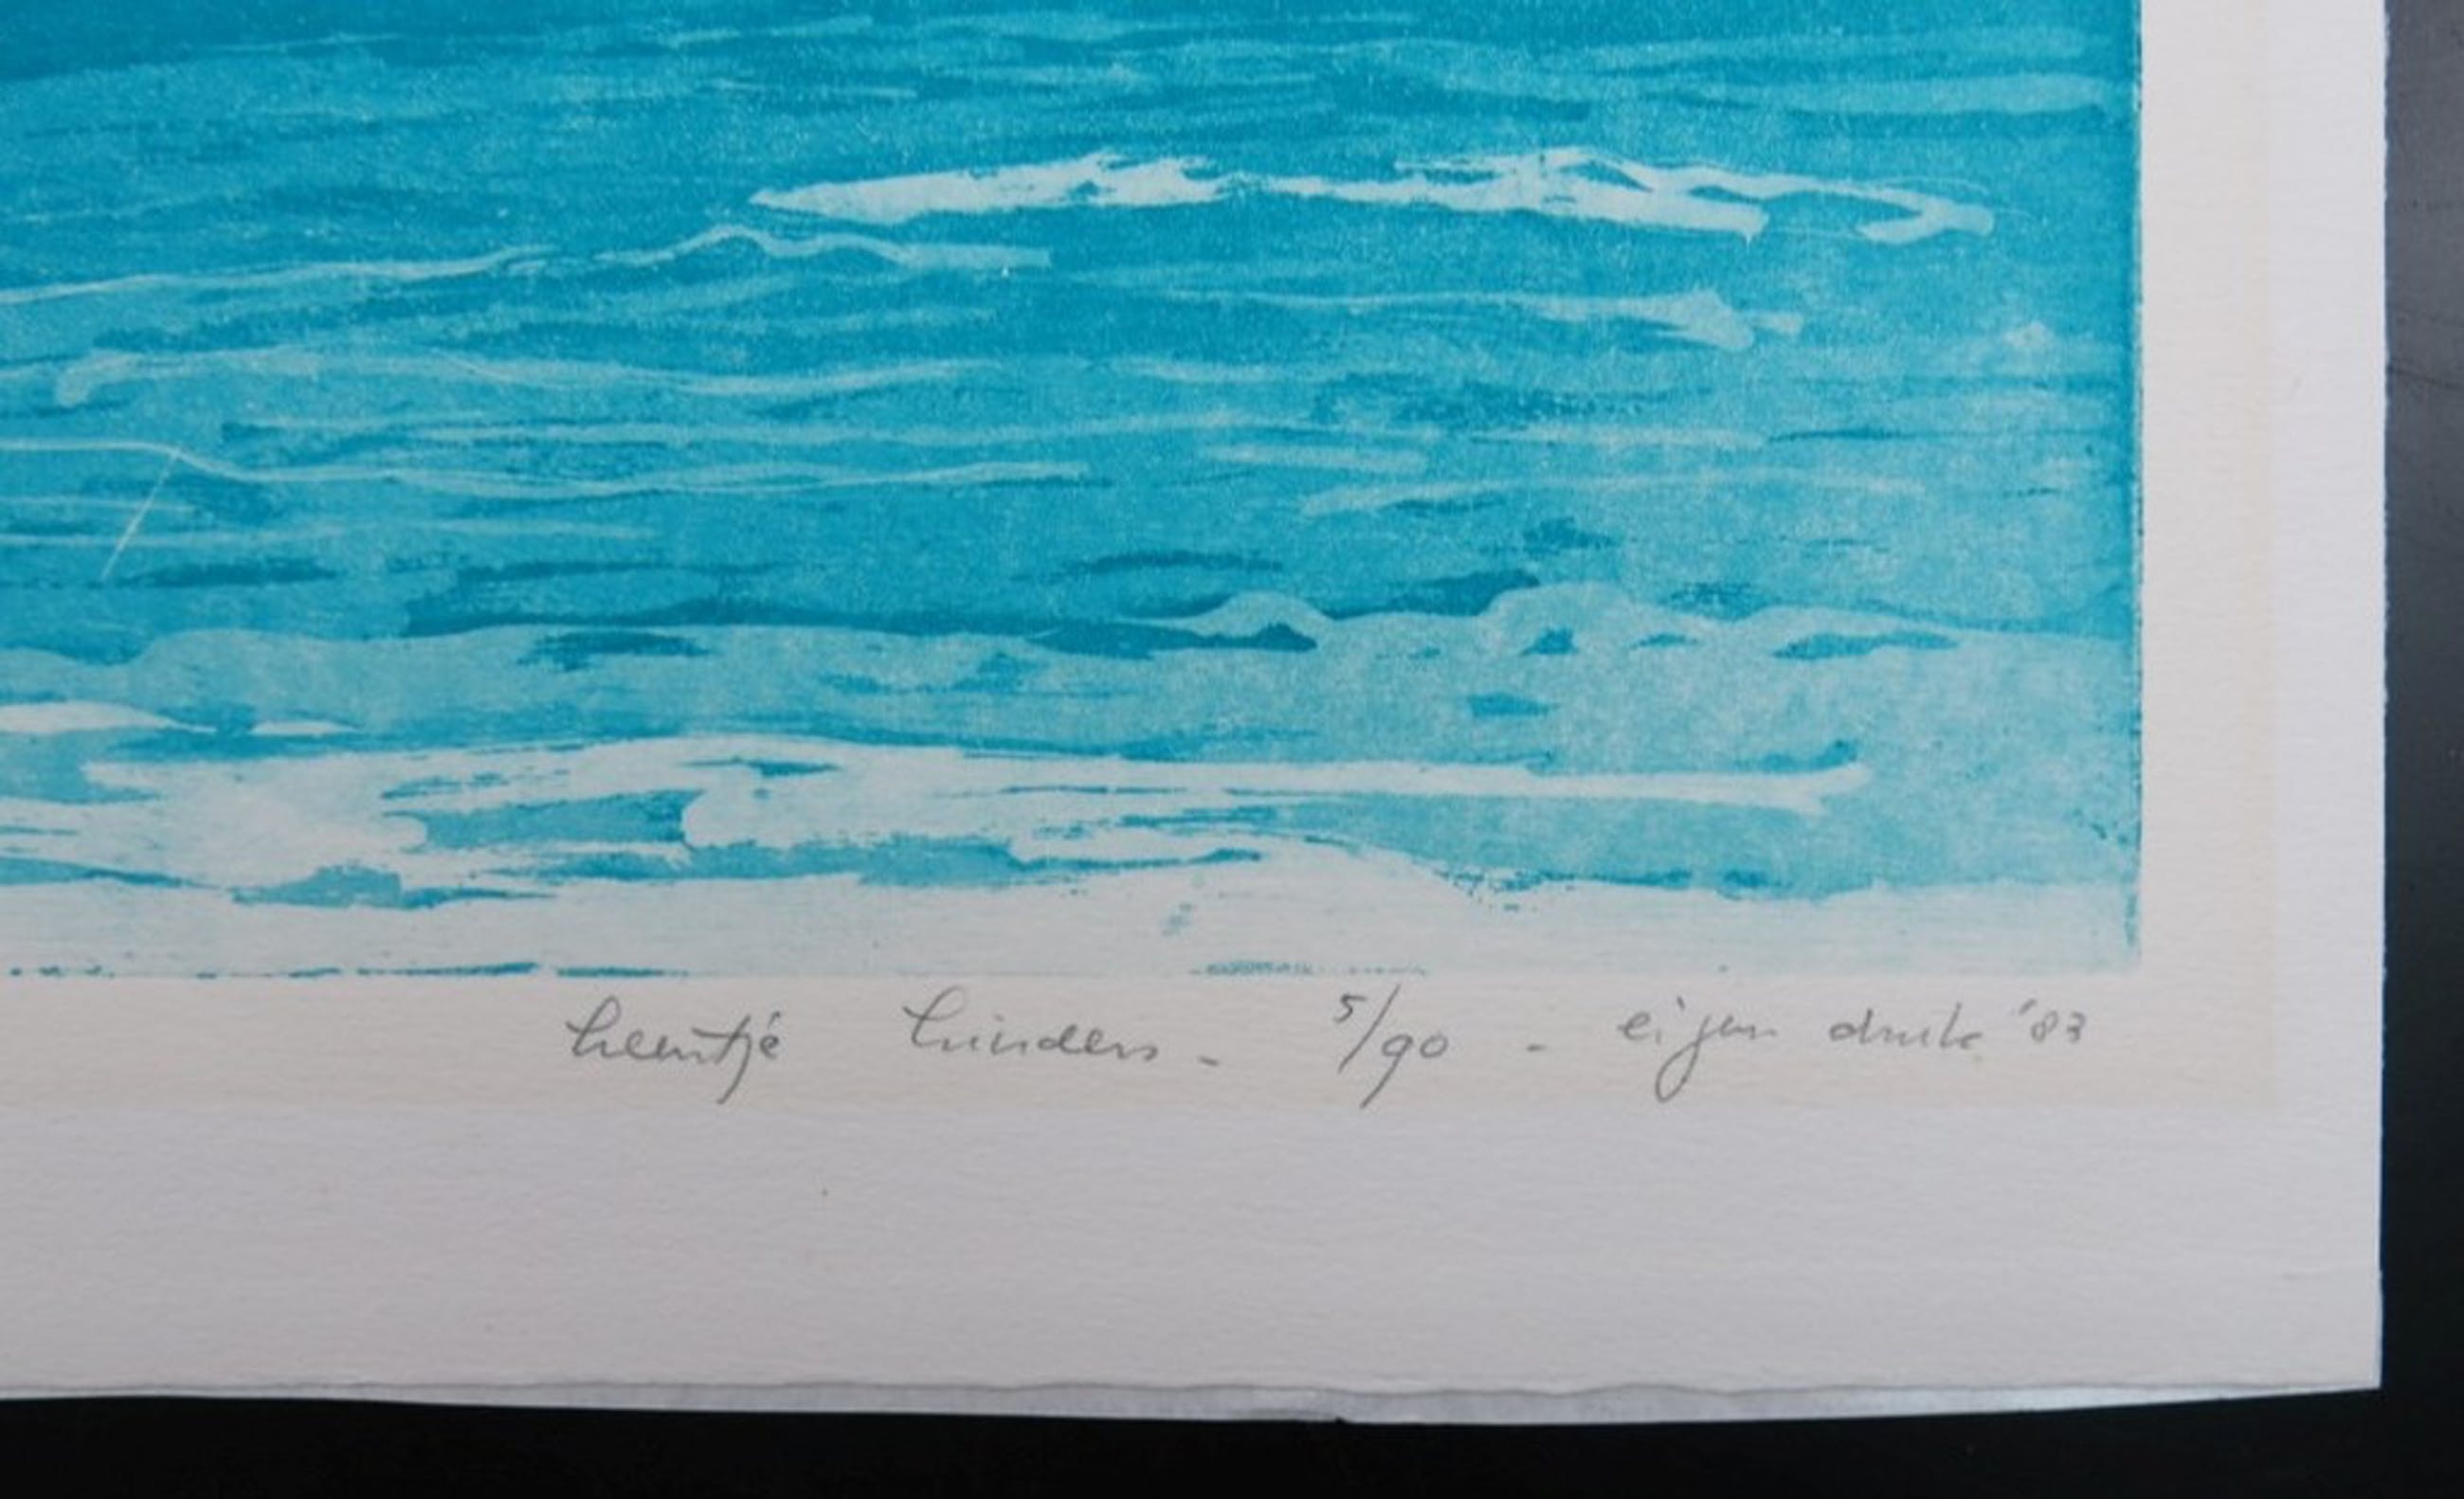 Leentje Linders - 5/90 - eigen druk '83